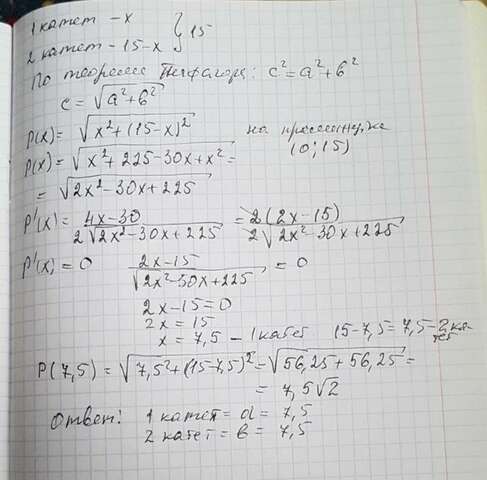 1 катет – x
2 катет – 15-x } 15
По теореме Пифагора: c² = a² + b²
c = √(a² + b²)
P(x) = √(x² + (15-x)²) на промежутке
P(x) = √(x² + 225 - 30x + x²) = (0; 15)
= √(2x² - 30x + 225)
P'(x) = (4x-30)/(2√(2x² - 30x + 225)) = 2(2x-15)/(2√(2x² - 30x + 225))
P'(x) = 0 (2x-15)/√(2x² - 30x + 225) = 0
2x - 15 = 0
2x = 15
x = 7,5 – 1 катет 15-7,5 = 7,5 – 2 катет
P(7,5) = √(7,5² + (15-7,5)²) = √(56,25 + 56,25) =
= 7,5√2
Ответ: 1 катет = a = 7,5
2 катет = b = 7,5